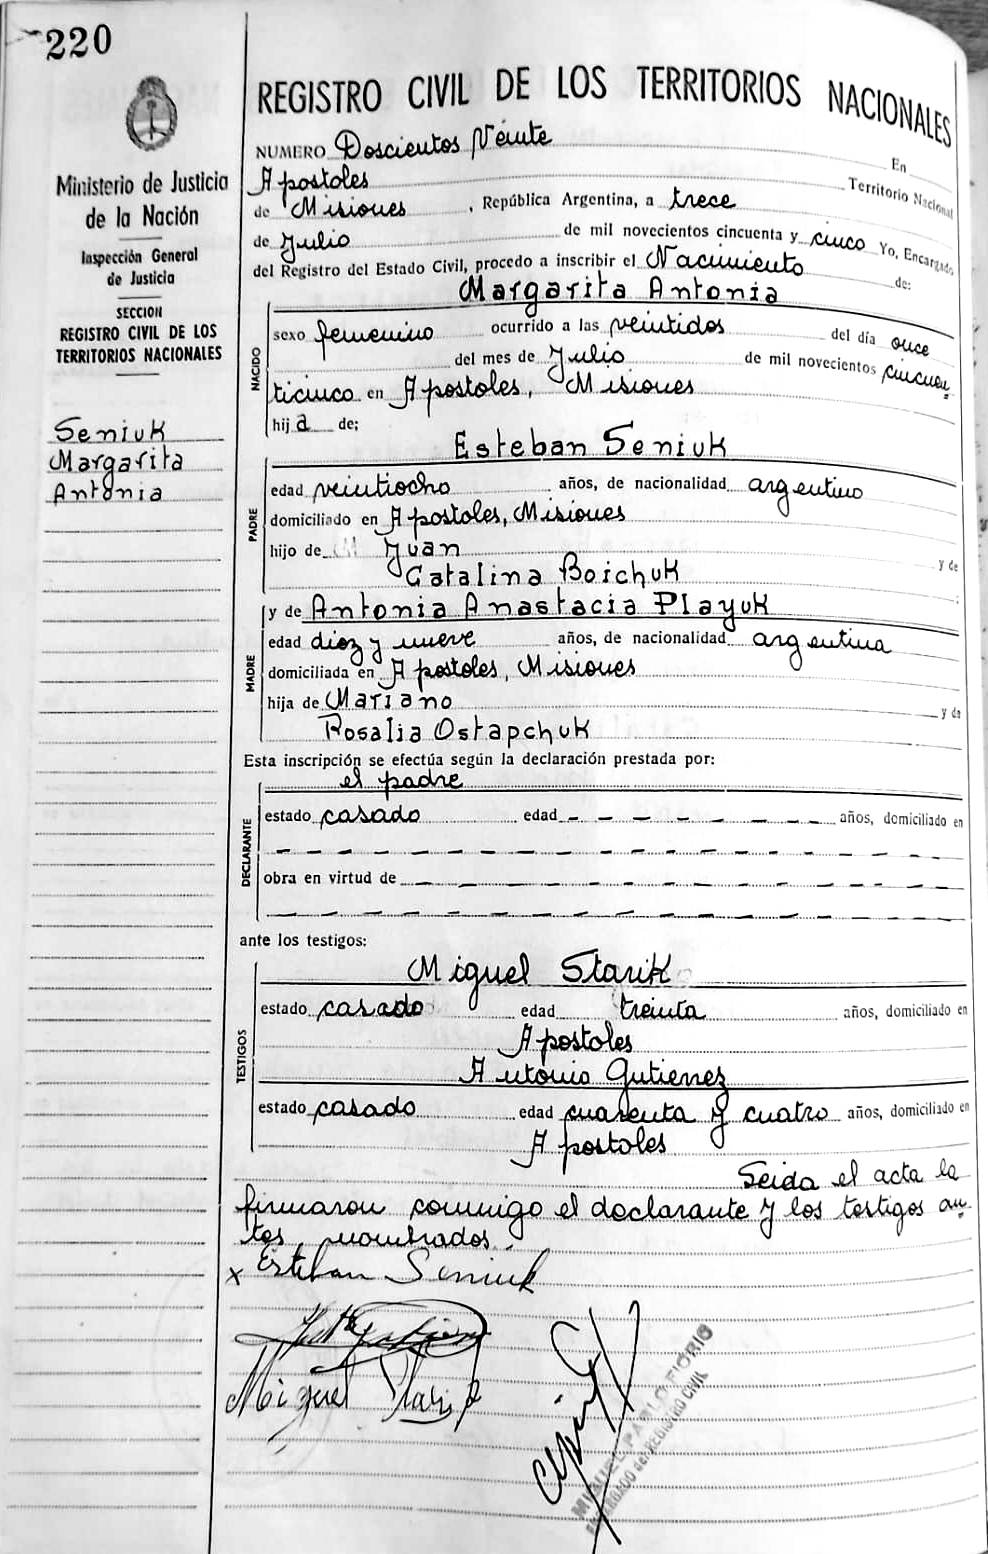 220
Ministerio de Justicia
de la Nación
Inspección General
de Justicia
SECCION
REGISTRO CIVIL DE LOS
TERRITORIOS NACIONALES
Seniuk
Margarita
Antonia
REGISTRO CIVIL DE LOS TERRITORIOS NACIONALES
NUMERO Doscientos Veinte En
Apostoles Territorio Nacional
de Misiones, República Argentina, a trece
de Julio de mil novecientos cincuenta y cinco Yo, Encargado
del Registro del Estado Civil, procedo a inscribir el Nacimiento de:
NACIDO
Margarita Antonia
sexo femenino ocurrido a las veintidos del día once
del mes de Julio de mil novecientos cincuen
ticinco en Apostoles, Misiones
hija de;
PADRE
Esteban Seniuk
edad veintiocho años, de nacionalidad argentino
domiciliado en Apostoles, Misiones
hijo de Juan y de
Catalina Boichuk ;
MADRE
y de Antonia Anastacia Playuk
edad diez y nueve años, de nacionalidad argentina
domiciliada en Apostoles, Misiones
hija de Mariano y de
Rosalia Ostapchuk
Esta inscripción se efectúa según la declaración prestada por:
DECLARANTE
el padre
estado casado edad - - - - - - - - años, domiciliado en
- - - - - - - - - - - - - - - - -
obra en virtud de - - - - - - - - - - - - -
- - - - - - - - - - - - - - - - -
ante los testigos:
TESTIGOS
Miguel Starik
estado casado edad treinta años, domiciliado en
Apostoles
Antonio Gutierrez
estado casado edad cuarenta y cuatro años, domiciliado en
Apostoles
Leida el acta la
firmaron conmigo el declarante y los testigos an
tes nombrados.
x Esteban Seniuk
Miguel Starik
MIGUEL PABLO FIORIO
ENCARGADO del REGISTRO CIVIL